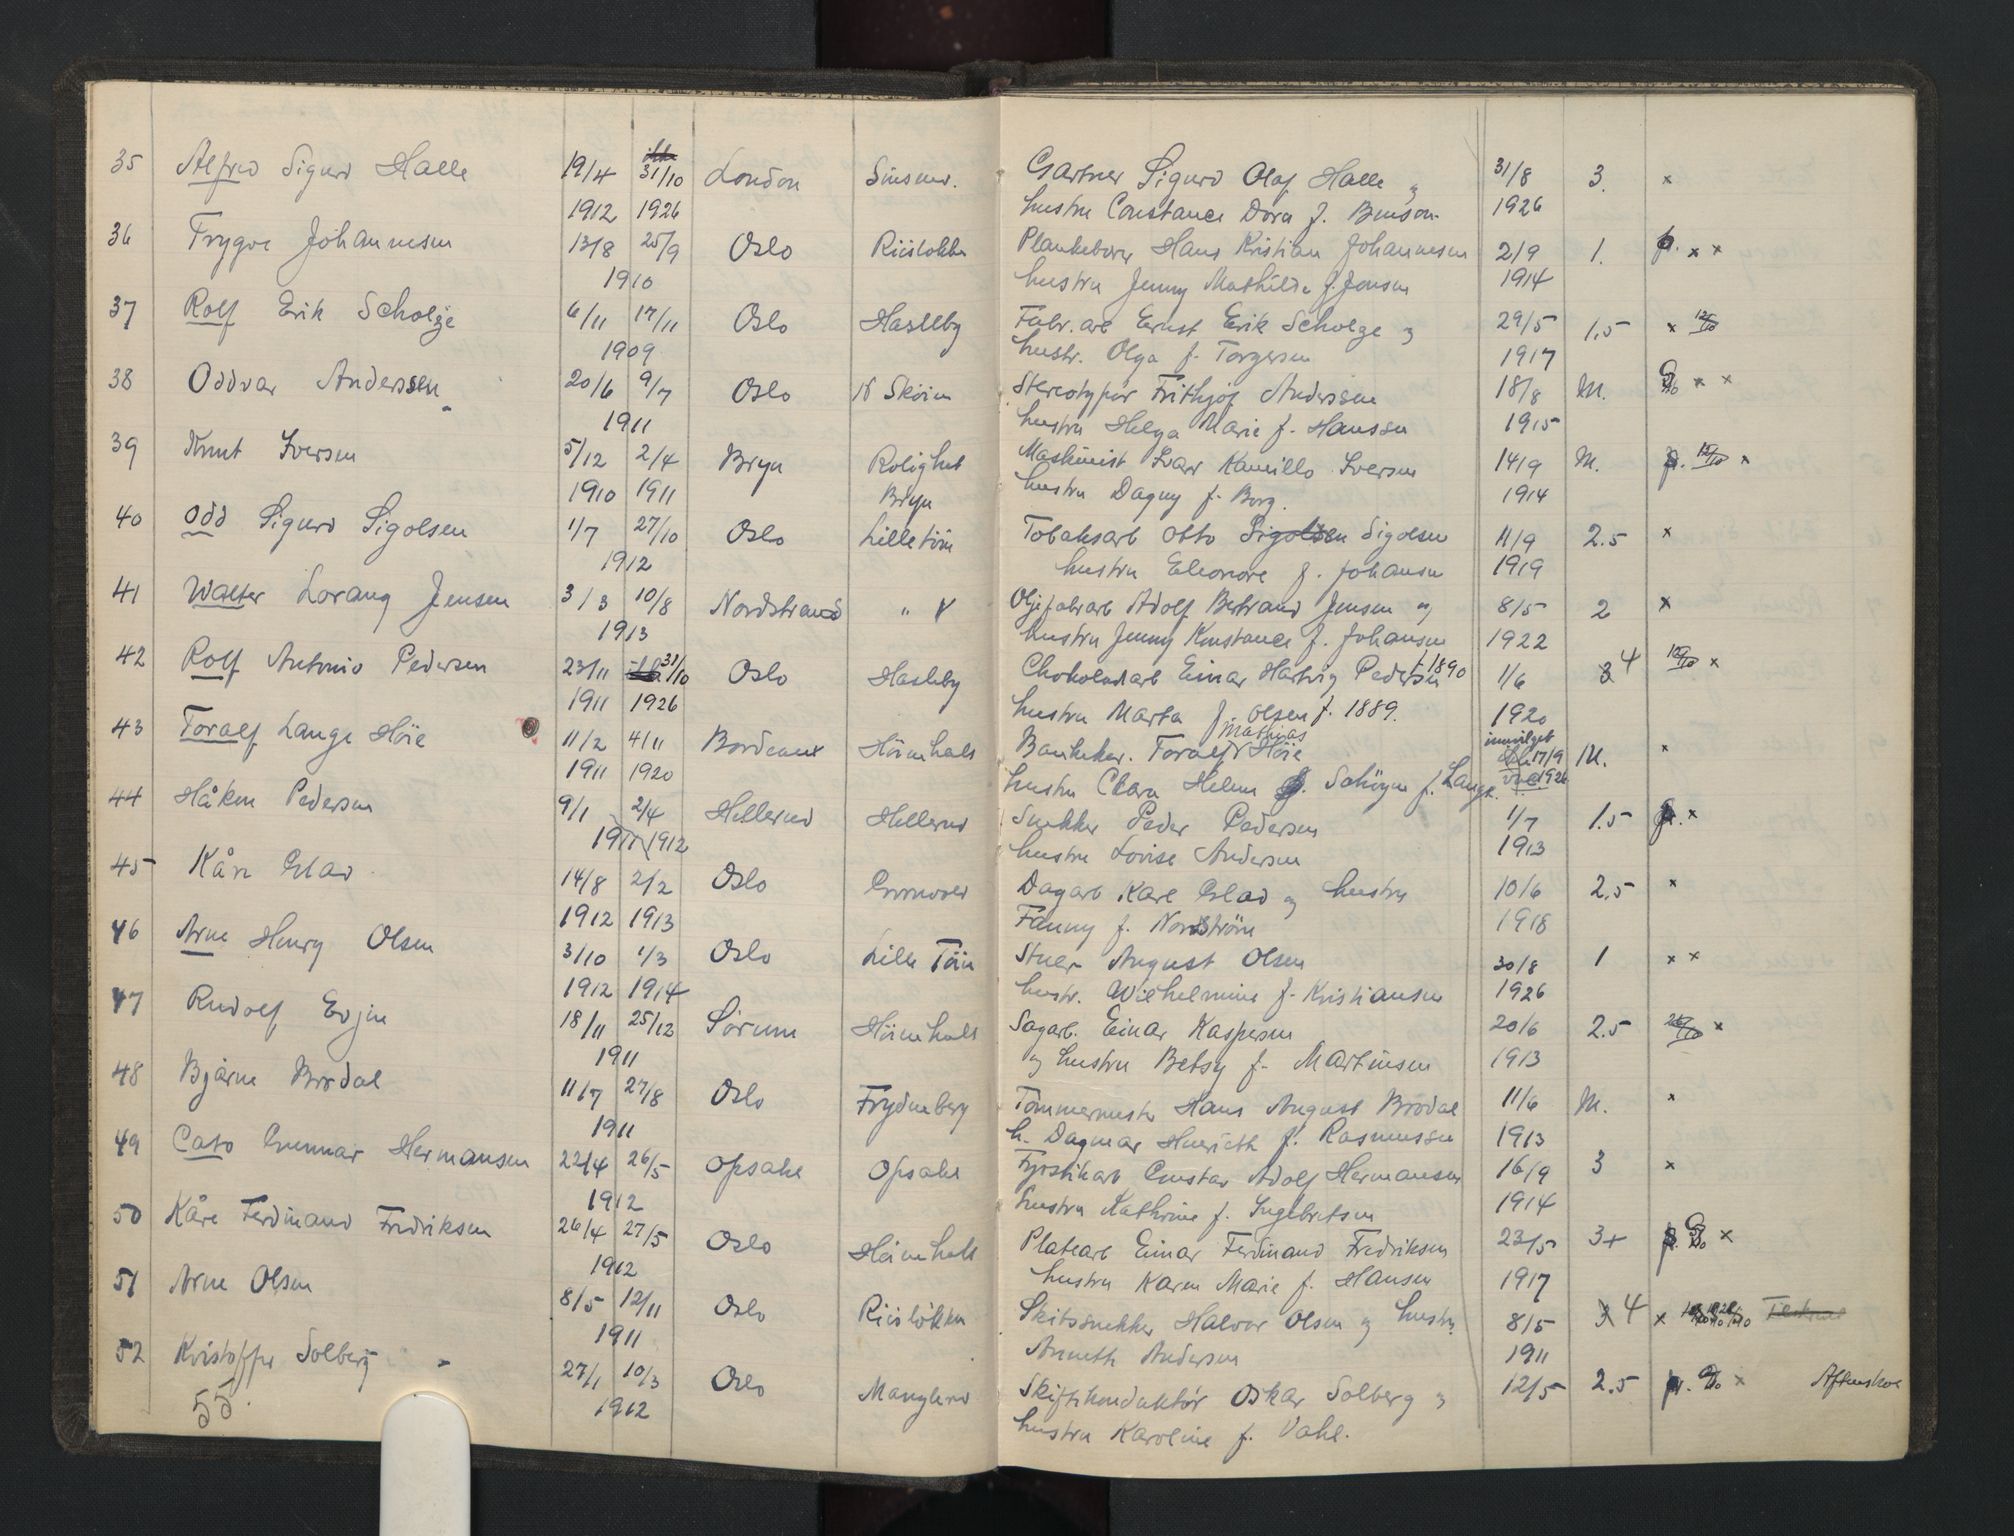 35 Alfred Sigurd Halle 19/4 31/10 London Sinsen. Gartner Sigurd Olaf Halle og 31/8 3. x
1912 1926 hustru Constance Dora f. Benson 1926
36 Trygve Johannesen 13/8 25/9 Oslo Riisløkka Plankebærer Hans Kristian Johannesen 2/9 1. p. x x
1910 hustru Jenny Mathilde f. Jensen 1914
37 Rolf Erik Scholze 6/11 17/11 Oslo Hasleby Fabr.arb Ernst Erik Scholze og 29/5 1,5 x 12/10
1909 hustr. Olga f. Torgersen 1917
38 Oddvar Anderssen 20/6 9/7 Oslo N Skøien Stereotypør Frithjof Anderssen 18/8 M. x x
1911 hustru Helga Marie f. Hanssen 1915
39 Knut Iversen 5/12 2/4 Bryn Rolighet Maskinist Ivar Kamillo Iversen 14/9 M. p. 12/10 x
1910 1911 Bryn hustru Dagny f. Borg. 1914
40 Odd Sigurd Sigolsen 1/7 27/10 Oslo Lilletöien Tobaksarb Otto Sigolsen Sigolsen 11/9 2.5 x
1912 hustru Eleonore f. Johansen 1919
41 Walter Lorang Jensen 3/3 10/8 Nordstrand " Oljefabrarb Adolf Bertrand Jensen og 8/5 2 x
1913 hustru Jenny Konstance f. Johansen 1922
42 Rolf Antonio Pedersen 23/11 31/10 Oslo Hasleby Chokoladarb Einar Hartvig Pedersen f. 1890 1/6 3 4 12/10 x
1911 1926 hustru Marta f. Olsen f. 1889. 1920
43 Toralf Lange Höie 11/2 4/11 Bordeaux Höienhald Banksekr. Toralf Mathias Höie innvilget 17/9 M. x
1911 1920 hustru Clara Helene Schöyen f. Lange 1926
44 Håken Pedersen 9/1 2/4 Hellerud Hellerud Snekker Peder Pedersen 1/7 1.5 p. x
1911 1912 hustru Lovise Andersen 1913
45 Kåre Glad 14/8 2/2 Oslo Dagarb Karl Glad og hustru 10/6 2.5 x
1912 1913 Fanny f. Nordström 1918
46 Arne Henry Olsen 3/10 1/3 Oslo Lille Töien Stuer August Olsen 30/8 1 x x
1912 1914 hustr. Wilhelmine f. Kristiansen 1926
47 Rudolf Evjen 18/11 25/12 Sörum Höienhald Sagarb. Einar Kaspersen 20/6 2.5 26/10 x
1911 og hustru Betsy f. Martinsen 1913
48 Bjarne Brodal 11/7 27/8 Oslo Frydenberg Tömmermester Hans August Brodal 11/6 M. x
1911 h. Dagmar Henriette f. Rasmussen 1913
49 Cato Gunnar Hermansen 22/4 26/5 Opsahl Opsahl Fyrstikarb Gustav Adolf Hermansen 16/9 3 x
1912 hustru Kathrine f. Ingebretsen 1914
50 Kåre Ferdinand Fredriksen 26/4 27/5 Oslo Höienhald Platearb Einar Ferdinand Fredriksen 23/5 3+ p. x
1912 hustru Karen Marie f. Hansen 1917
51 Arne Olsen 8/5 12/11 Oslo Riisløkken Skitssnekker Halvor Olsen og hustru 8/5 3 4 x
1911 Anneth Andersen 1911
52 Kristoffer Solberg 27/1 10/3 Oslo Manglerud Skiftekonduktör Oskar Solberg og 12/5 2.5 p. x Aftenskole
55. 1912 hustru Karoline f. Dahl.